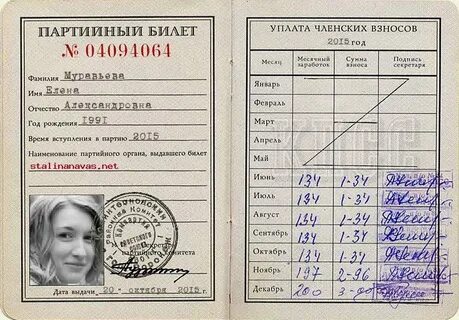 ПАРТИЙНЫЙ БИЛЕТ
№ 04094064
Фамилия Муравьева
Имя Елена
Отчество Александровна
Год рождения 1991
Время вступления в партию 2015
Наименование партийного органа, выдавшего билет
stalinanavas.net
секретарь
партийного комитета
Дата выдачи 20 октября 2015 г.
УПЛАТА ЧЛЕНСКИХ ВЗНОСОВ
2015 год
Месяц Месячный заработок Сумма взноса Подпись секретаря
Январь
Февраль
Март
Апрель
Май
КПСС
Июнь 134 1-34
Июль 134 1-34
Август 134 1-34
Сентябрь 134 1-34
Октябрь 134 1-34
Ноябрь 197 2-96
Декабрь 200